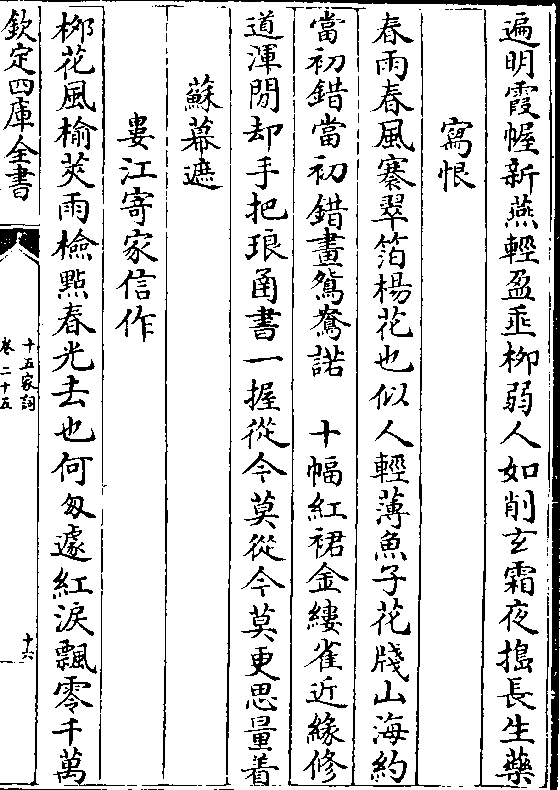 遍明霞幄新燕輕盈垂柳弱人如削玄霜夜搗長生藥
寫恨
春雨春風褰翠箔楊花也似人輕薄魚子花牋山海約
當初錯當初錯畫鴛鴦諾　十幅紅裙金縷雀近緣修
道渾閒却手把琅函書一握從今莫從今莫更思量着
蘇幕遮
婁江寄家信作
柳花風榆莢雨檢點春光去也何匆遽紅淚飄零千萬
欽定四庫全書
十五家詞
卷二十五
十六